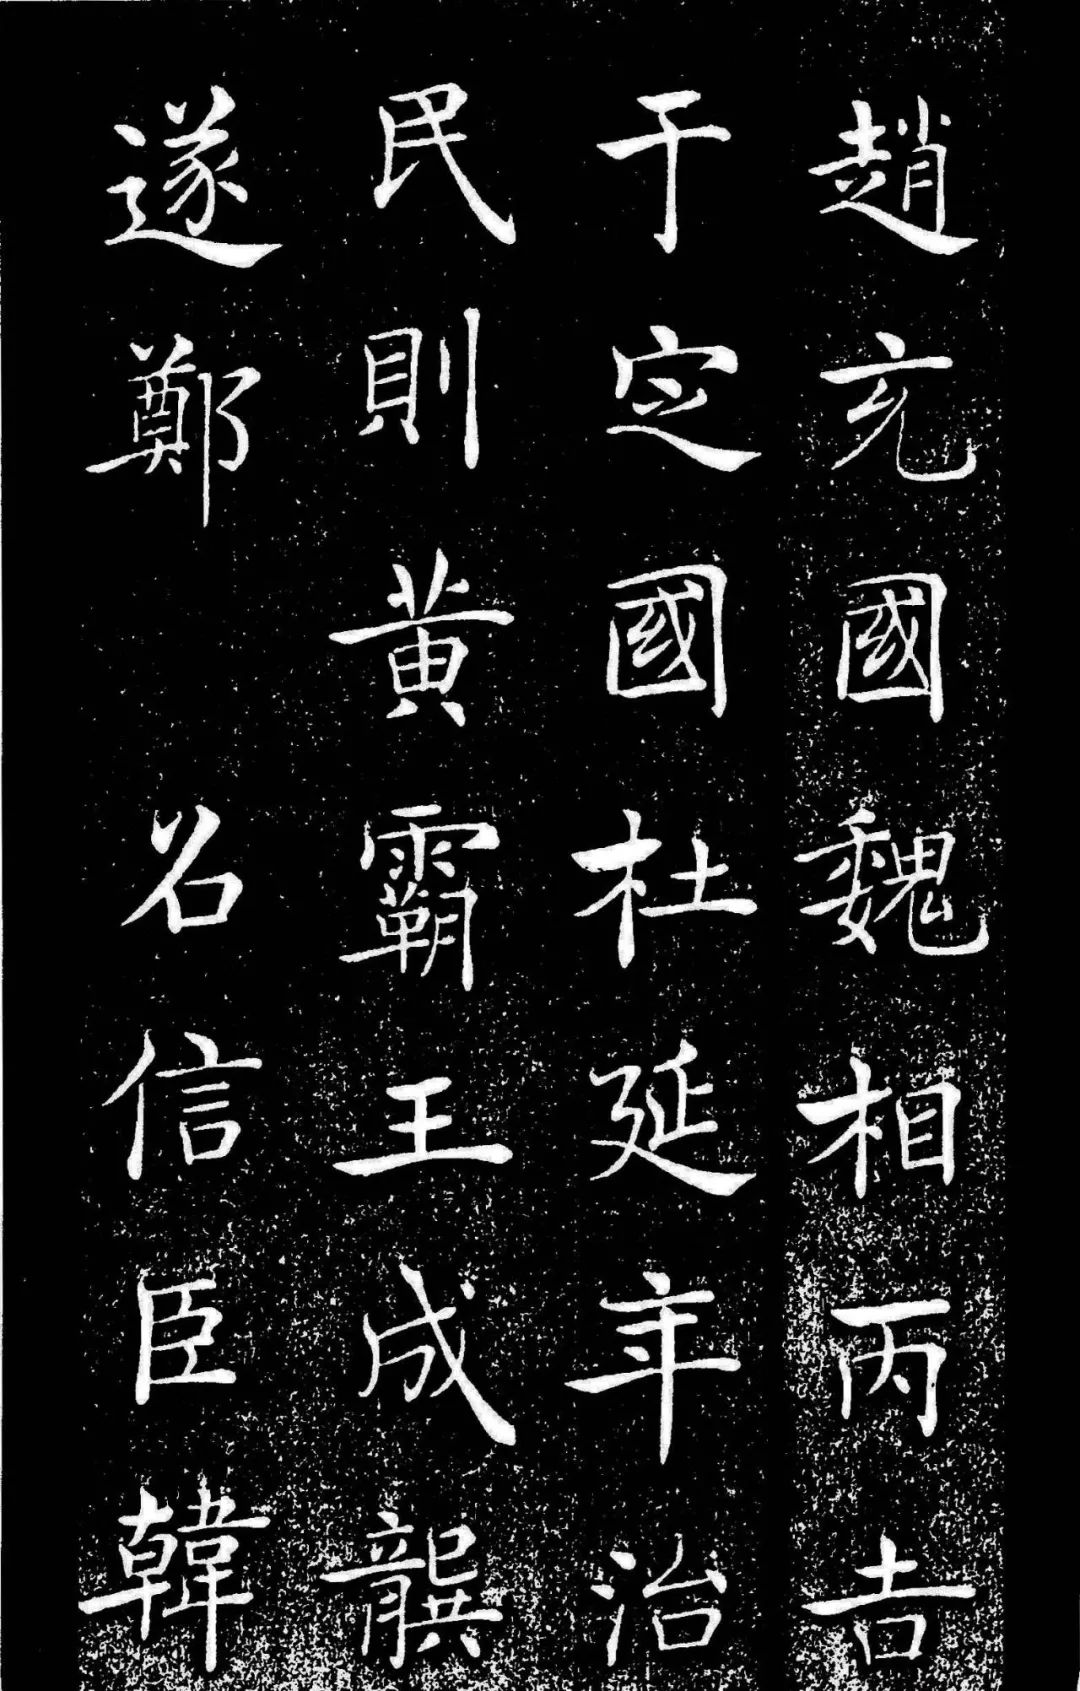 趙充國魏相丙吉
于定國杜延年治
民則黃霸王成龔
遂鄭 名信臣韓